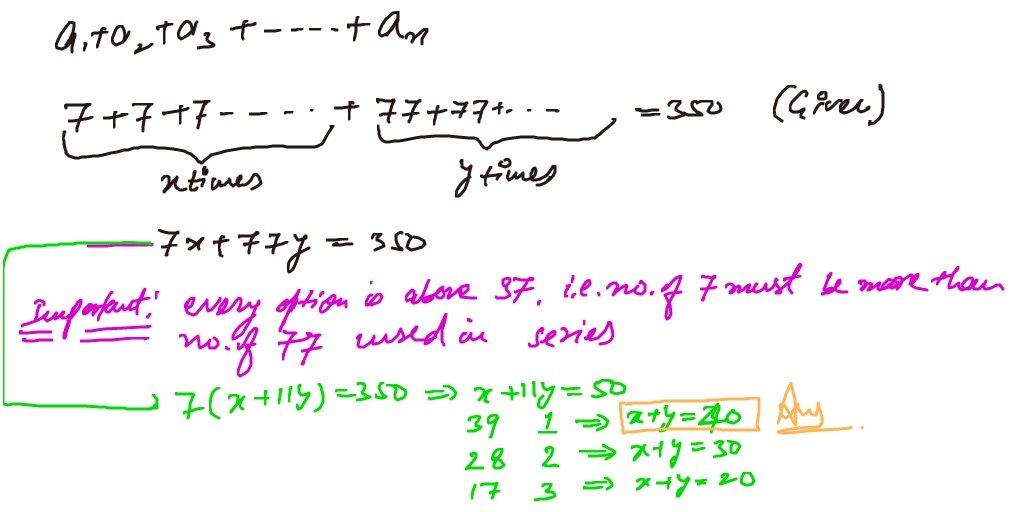 a₁+a₂+a₃ +----+ aₙ
7+7+7----- + 77+77+... = 350 (Given)
x times y times
7x+77y = 350
Important: every option is above 37, i.e. no. of 7 must be more than
no. of 77 used in series
7(x+11y)=350 ⇒ x+11y=50
39 1 ⇒ x+y=40 Ans
28 2 ⇒ x+y=30
17 3 ⇒ x+y=20